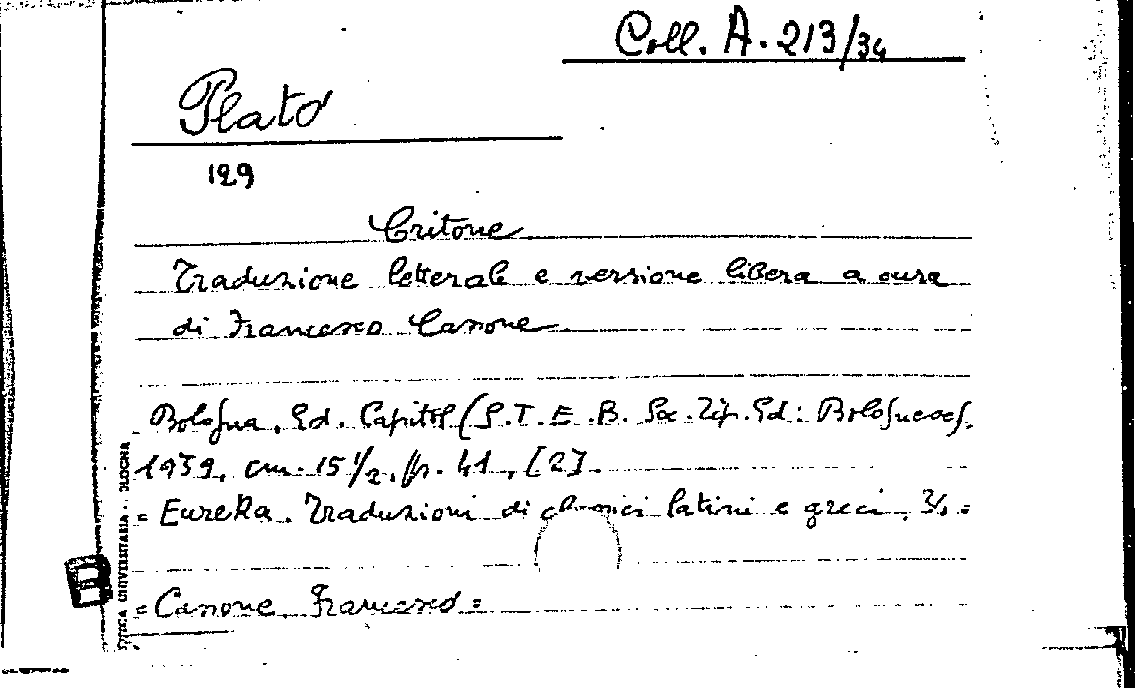 Coll. A. 213/34
Plato
129
Critone
Traduzione letterale e versione libera a cura
di Francesco Canone
Bologna, Ed. Capitol (S.T.E.B. Soc. Tip. Ed: Bolognese),
1959, cm. 15 1/2, p. 41, [2].
= Eureka. Traduzioni di classici latini e greci, =
= Canone, Francesco =
UNIVERSITARIA